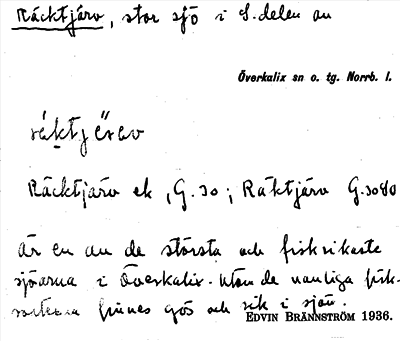 Räcktjärv, stor sjö i S.delen av
Överkalix sn o. tg. Norrb. l.
räktjërav
Räcktjärv ek, G.30; Räktjärv G.3040
Är en av de största och fiskrikaste
sjöarna i Överkalix. Utom de vanliga fisk-
sorterna finnes gös och sik i sjön.
EDVIN BRÄNNSTRÖM 1936.